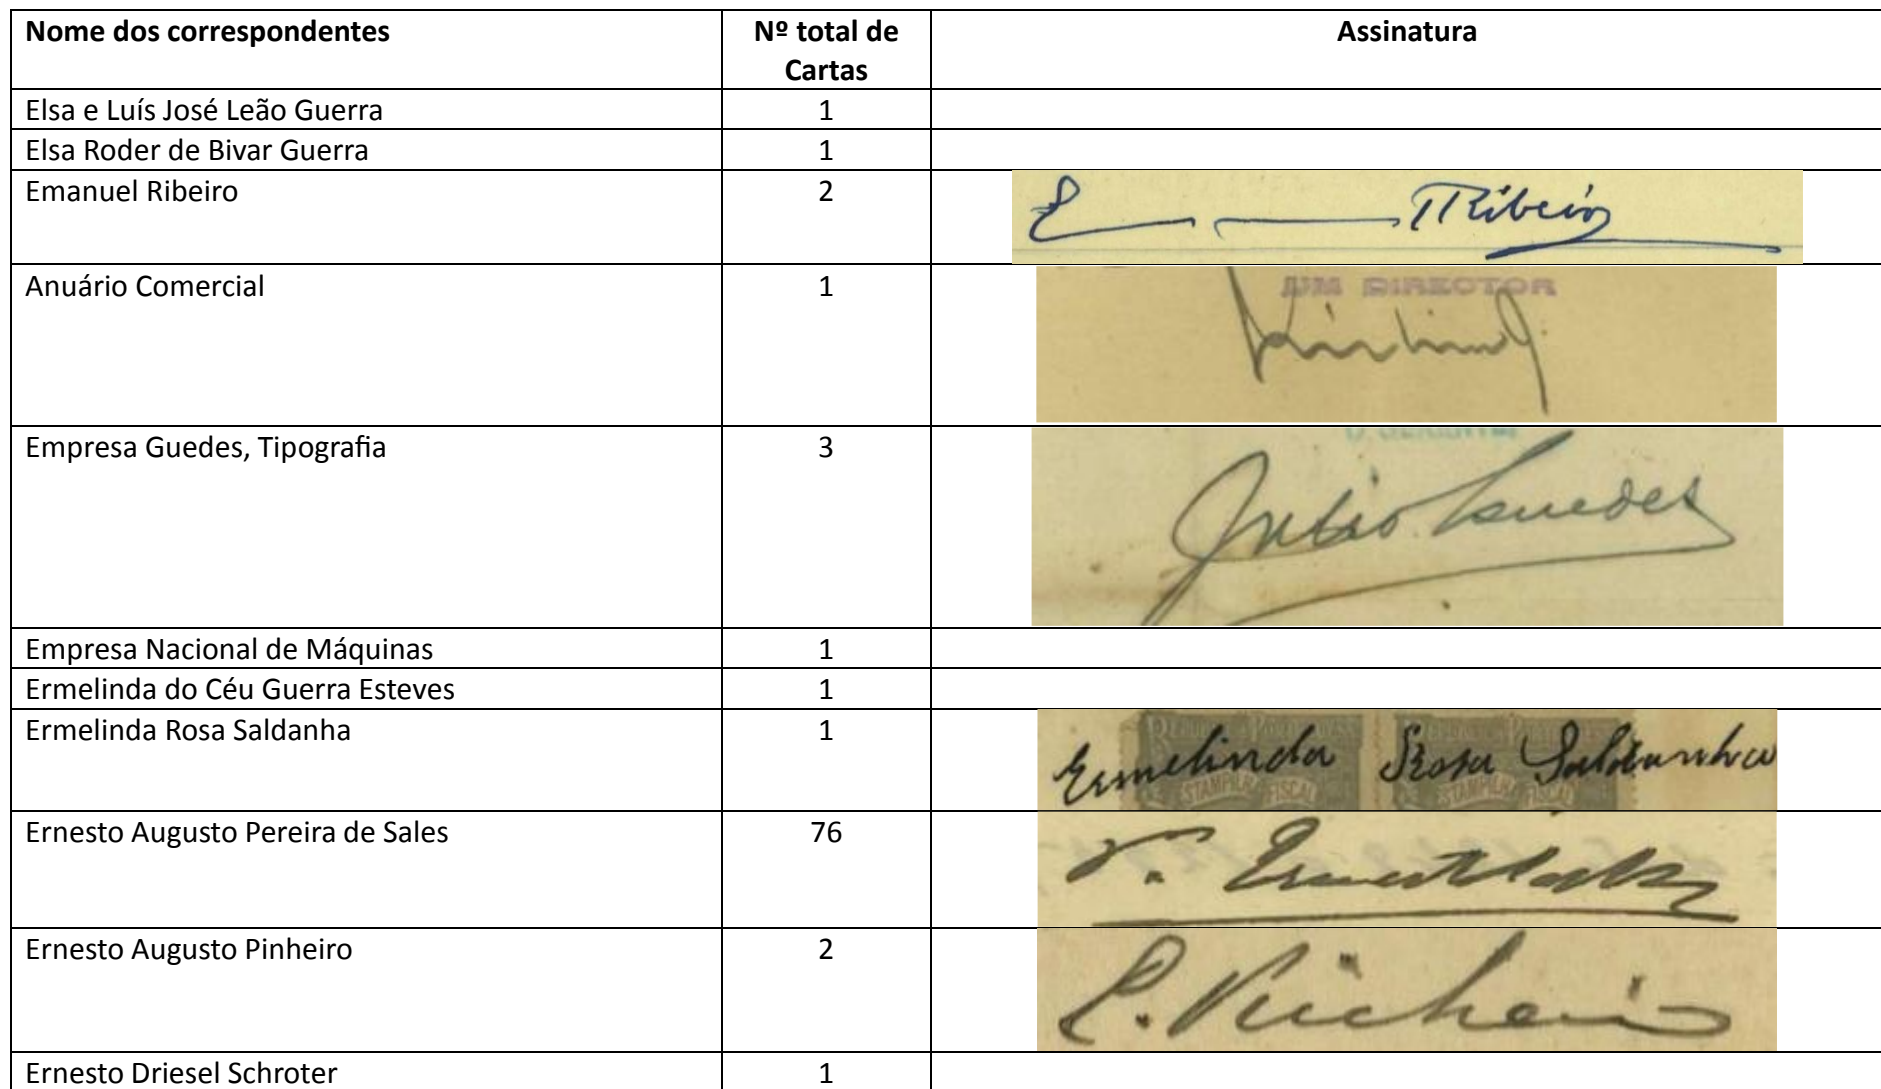 Nome dos correspondentes Nº total de Cartas Assinatura
Elsa e Luís José Leão Guerra 1
Elsa Roder de Bivar Guerra 1
Emanuel Ribeiro 2
E Ribeiro
Anuário Comercial 1
UM DIRECTOR
Empresa Guedes, Tipografia 3
O GERENTE
Julio Guedes
Empresa Nacional de Máquinas 1
Ermelinda do Céu Guerra Esteves 1
Ermelinda Rosa Saldanha 1
REPUBLICA PORTUGUESA REPUBLICA PORTUGUESA
Ermelinda Rosa Saldanha
ESTAMPILHA FISCAL ESTAMPILHA FISCAL
Ernesto Augusto Pereira de Sales 76
P. Ernesto Sales
Ernesto Augusto Pinheiro 2
E. Pinheiro
Ernesto Driesel Schroter 1